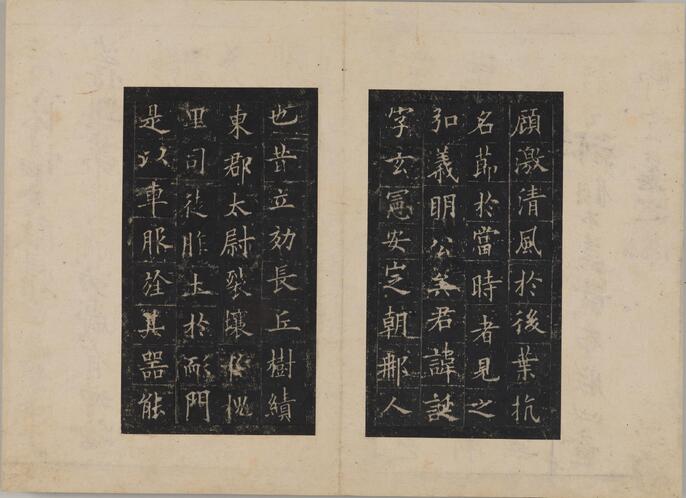 顧激清風於後葉抗
名莭於當時者見之
弘義明公矣君諱誕
字玄憲安定朝郍人
也昔立効長丘樹績
東郡太尉裂壤於槐
里司徒胙土於耏門
是以車服旌其器能